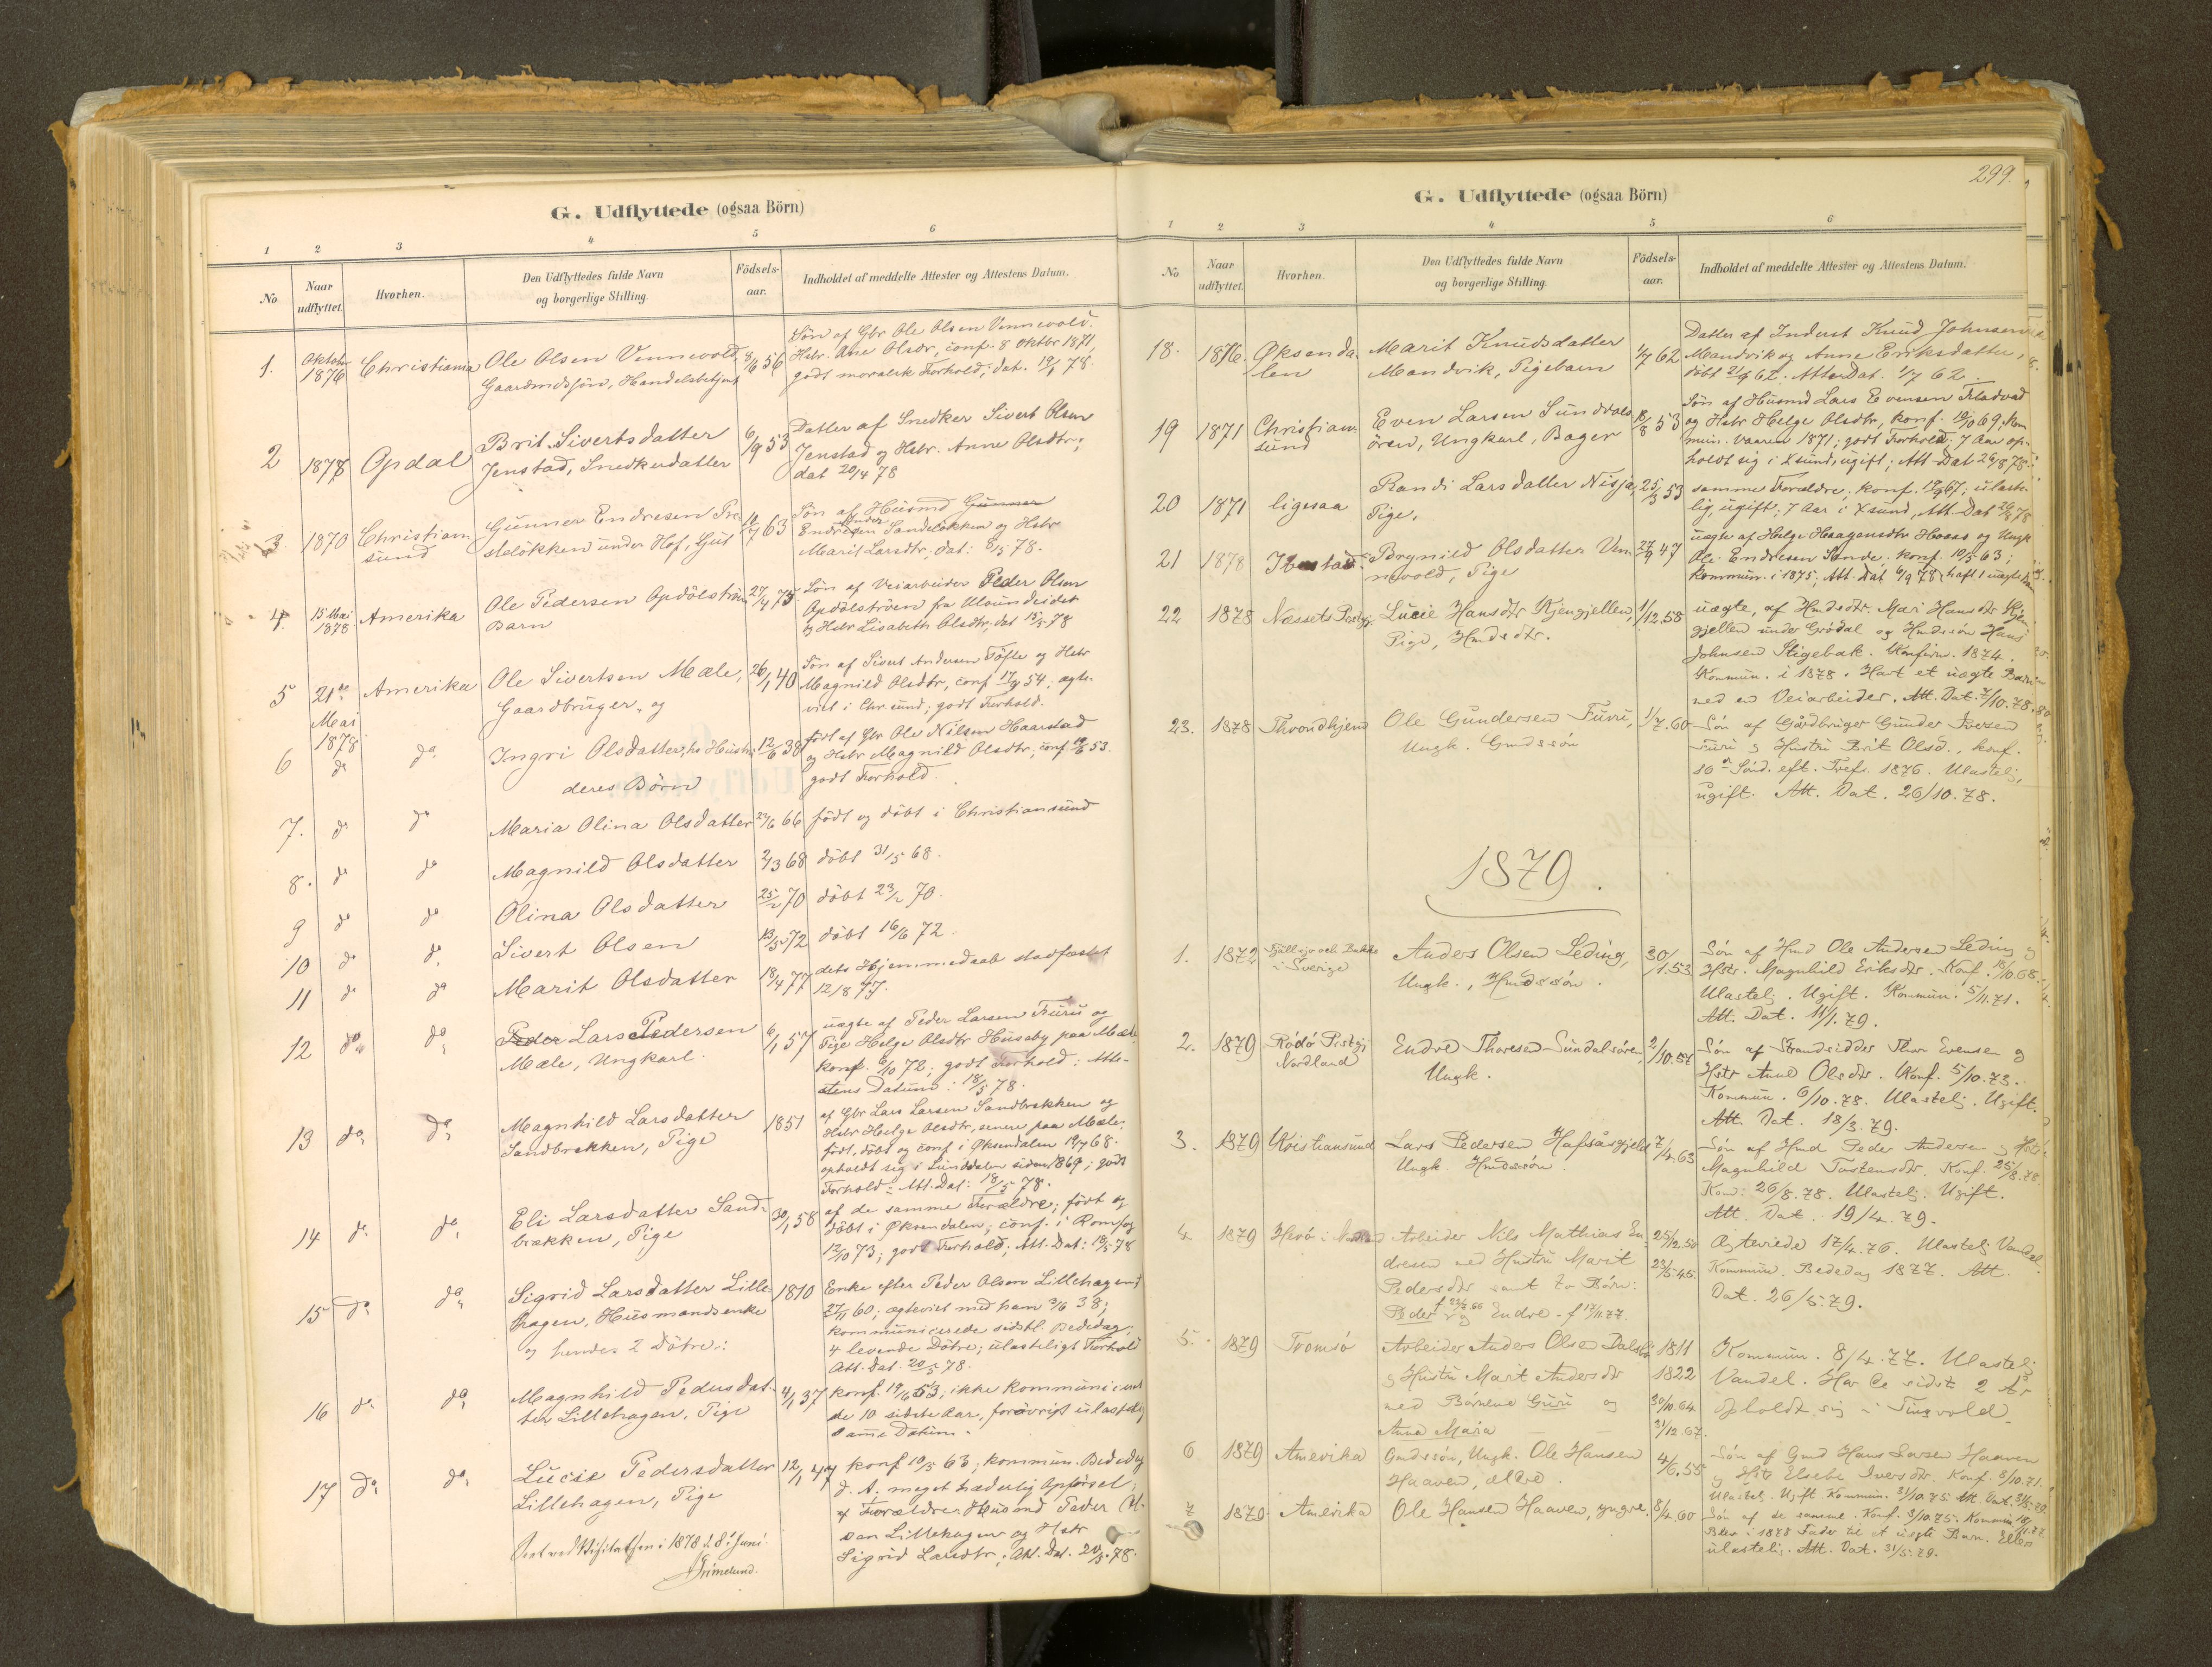 G. Udflyttede (ogsaa Börn)
1 2 3 4 5 6
No
Naar udflyttet.
Hvorhen.
Den Udflyttedes fulde Navn og borgerlige Stilling.
Födsels-aar.
Indholdet af meddelte Attester og Attestens Datum.
1. Oktober 1876 Christiania Ole Olsen Vennevold, 8/6 56 Søn af Gbr Ole Olsen Vennevold.
Gaardmdssön, Handelsbetjent Hstr. Ane Olsdr, conf. 8 Oktbr 1871,
godt moralsk Forhold; dat. 19/1 78.
2 1878 Opdal Brit Sivertsdatter 6/9 53 Datter af Snedker Sivert Olsen
Jenstad, Snedkerdatter Jenstad og Hstr. Anne Olsdtr;
dat 20/4 78
3 1870 Christiansund Gunner Endresen Pre- 63 Søn af Husmd Gunner
steløkken under Hof, Gjut Endresen Sandeløkken og Hstr
Marit Larsdtr; dat: 8/5 78.
4. 15 Mai 1878 Amerika Ole Pedersen Opdölströen 27/4 75 Søn af Veiarbeider Peder Olsen
Barn Opdölströen fra Ulvundeidet
og Hstr Lisabeth Olsdtr, dat 13/5 78
5 21de Mai 1878 Amerika Ole Sivertsen Mæle, 26/1 40 Søn af Sivert Andersen Töfte og Hstr
Gaardbruger, og Magnild Olsdtr, conf 54; ægte-
viet i Chr.sund; godt Forhold.
6 do do Ingri Olsdatter, hs Hustru 12/6 38 født af Gbr Ole Nilsen Haarstad
deres Børn og Hstr Magnild Olsdtr, conf 53.
godt Forhold.
7. do do Maria Olina Olsdatter 66 født og döbt i Christiansund
8. do do Magnild Olsdatter 2/3 68 döbt 31/5 68.
9 do do Olina Olsdatter 70 döbt 23/2 70.
10 do do Sivert Olsen 13/5 72 döbt 16/6 72
11 do do Marit Olsdatter 18/4 77 dets Hjemmedaab stadfæstet
12/8 77.
12 do do Peder Lars Pedersen 6/1 57 uægte af Peder Larsen Furu og
Mæle, Ungkarl. Pige Helge Olsdtr Huseby paa Mæle,
konf. 6/10 72; godt Forhold; Atte-
stens Datum: 18/5 78.
13 do do Magnhild Larsdatter 1851 af Gbr Lars Larsen Sandbrekken og
Sandbrekken, Pige Hstr Helge Olsdtr, senere paa Mæle,
født, döbt og conf i Øksendalen 68.
opholdt sig i Sundalen siden 1869; godt
Forhold; Att. Dat: 18/5 78.
14 do do Eli Larsdatter Sand- 30/1 58 af de samme Forældre; født og
brækken, Pige döbt i Øksendalen; conf. i Romfog
12/10 73; godt Forhold; Att. Dat: 18/5 78
15 do do Sigrid Larsdatter Lille- 1810 Enke efter Peder Olsen Lillehagen †
hagen, Husmandsenke 27/11 60; ægteviet med ham 3/6 38;
og hendes 2 Døtre: kommunicerede sidstl. Bededag;
4 levende Døtre; ulasteligt Forhold
Att. dat. 20/5 78.
16 do do Magnhild Pedersdat- 4/1 37 konf. 19/6 53; ikke kommuniceret
ter Lillehagen, Pige de 10 sidste Aar, forøvrigt ulastelig
samme Datum.
17 do do Lucie Pedersdatter 12/1 47 konf 10/5 63; kommun. Bededag
Lillehagen, Pige d. A. meget hæderlig Opførsel;
Forældre Husmd Peder Ol-
sen Lillehagen og Hstr
Sigrid Larsdtr; Att. Dat. 20/5 78.
Seet ved Visitatsen i 1878 d. 8 Juni.
Grimelund.
299.
G. Udflyttede (ogsaa Börn)
1 2 3 4 5 6
No
Naar udflyttet.
Hvorhen.
Den Udflyttedes fulde Navn og borgerlige Stilling.
Födsels-aar.
Indholdet af meddelte Attester og Attestens Datum.
18. 1876 Øksendalen Marit Knudsdatter 1/7 62 Datter af Inderst Knud Johnsen
Mandvik, Pigebarn Mandvik og Anne Eriksdatter,
döbt 62. Att. Dat. 1/7 62.
19 1871 Christiansund Even Larsen Sundals- 18/8 53 Søn af Husmd Lars Evensen Fladvad
ören, Ungkarl, Bager og Hstr Helge Olsdtr, konf. 69, Kom
mun. Vaaren 1871; godt Forhold; 7 Aar op-
holdt sig i Xsund, ugift; Att. Dat 26/8 78.
20 1871 ligesaa Randi Larsdatter Nisja, 25/3 53 samme Forældre, konf. 67; ulaste-
Pige. lig, ugift; 7 Aar i Xsund, Att. Dat 26/8 78
21 1878 Brynild Olsdatter Ven- 27/9 47 uægte af Helge Haagensdtr Hoaas og Ungk
nevold, Pige Ole Endresen Sande; konf. 10/5 63;
kommun. i 1875, Att. Dat 6/9 78, haft 1 uægte
22 1878 Næssets Prstgj. Lucie Hansdtr Kjengjellen, 1/12.58 uægte, af Hmdsdtr. Mari Hansdtr Kjen
Pige, Hmdsdtr. gjellen under Grødal og Hmdssøn Hans
Johnsen Stigebak. Konfirm. 1874.
Kommun. i 1878. Havt et uægte Barn
med en Veiarbeider. Att. Dat. 7/10.78.
23. 1878 Throndhjem Ole Gundersen Furu, 1/7.60 Søn af Gårdbruger Gunder Iversen
Ungk. Gmdssøn Furu og Hustru Brit Olsd., konf.
16de Sönd. eft. Tref. 1876. Ulastelig,
ugift. Att. Dat. 26/10.78.
1879.
1. 1872 i Sverige Anders Olsen Leding, 30/1.53 Søn af Hmd Ole Andersen Leding og
Ungk., Hmdssøn. Hstr. Magnhild Eriksdtr. Konf. 18/10.68.
Ulastelig. Ugift. Kommun. 5/11.71.
Att. Dat. 11/1.79.
2. 1879 Rödö Prstgj Nordland Endre Thoresen Sundalsören, 2/10.57 Søn af Strandsidder Thor Evensen og
Ungk. Hstr Anne Olsdtr. Konf. 5/10.73.
Kommun. 6/10.78. Ulastelig. Ugift.
Att. Dat. 18/3.79.
3. 1879 Kristiansund Lars Pedersen Hafsåsgjeld 7/4.63 Søn af Hmd Peder Andersen og Hstr
Ungk. Hmdssøn Magnhild Tostensdtr. Konf. 25/8.78.
Kom. 26/8.78. Ulastelig. Ugift.
Att. Dat. 19/4.79.
4 1879 Herö i Arbeider Nils Mathias En- 25/12.50 Ægteviede 17/4.76. Ulastelig Vandel.
dresen med Hustru Marit 23/5.45. Kommun. Bededag 1877. Att.
Pedersdtr samt to Börn: Dat. 26/5.79.
Peder og Endre f. 17/11.77.
5. 1879 Tromsö Arbeider Anders Olsen Dalsbö 1811 Kommun. 8/4.77. Ulastelig
og Hustru Marit Andersdtr 1822 Vandel. Har de sidste 2 År
med Börnene Guri og 30/10.64 opholdt sig i Tingvold.
Anna Maria 31/12.67.
6 1879 Amerika Gmdssøn, Ungk. Ole Hansen 4/6.55 Søn af Gmd Hans Larsen Haaven
Haaven, ældre. og Hstr Elsebe Iversdtr. Konf. 8/10.71.
Ulastelig. Ugift. Kommun. 31/10.75. Att. Dat. 31/5.79.
7 1879 Amerika Ole Hansen Haaven, yngre. 8/4.60 Søn af de samme. Konf. 3/10.75. Kommun
Blev i 1878 Fader til et uægte Barn. Ellers
ulastelig. Att. Dat. 31/5.79.